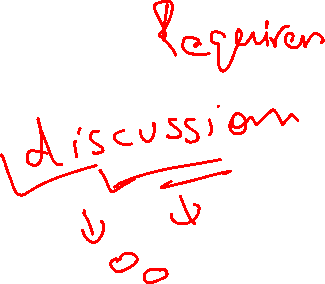 Requires
discussion